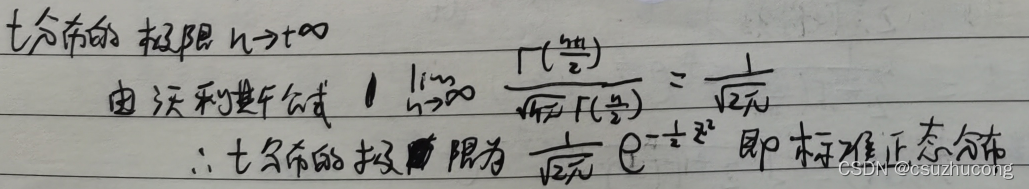 t分布的极限 n→+∞
由沃利斯公式 lim n→∞ Γ((n+1)/2) / (√(nπ) Γ(n/2)) = 1/√(2π)
∴ t分布的极限为 1/√(2π) e^(-1/2 z²) 即标准正态分布
CSDN @csuzhucong